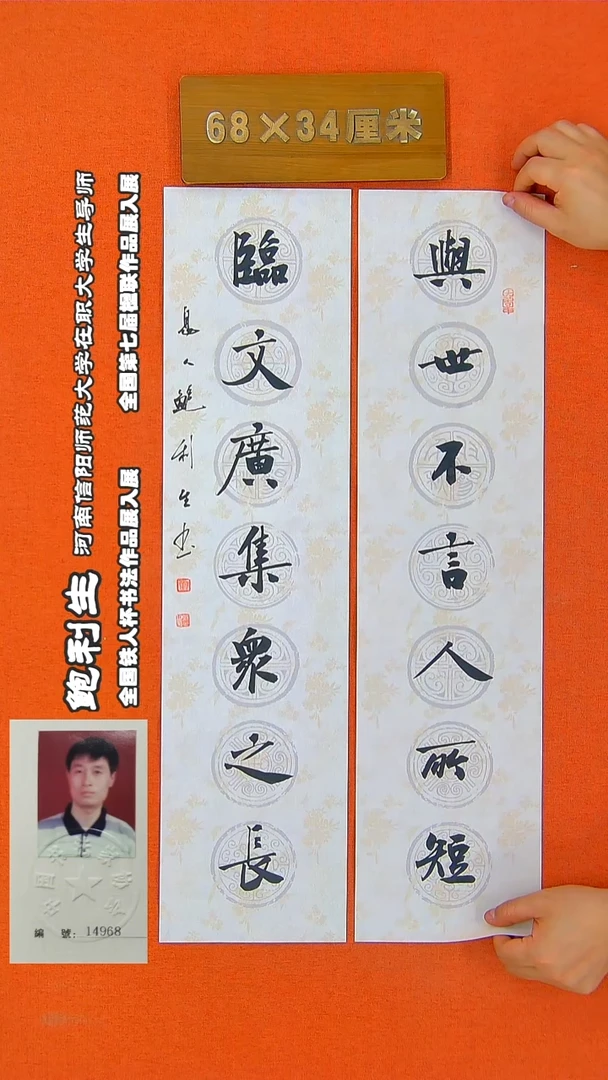 68×34厘米
與世不言人所短
臨文廣集衆之長
息人鲍利生书
鲍利生 河南信阳师范大学在职大学生导师
全国铁人杯书法作品展入展 全国第七届楹联作品展入展
編號: 14968